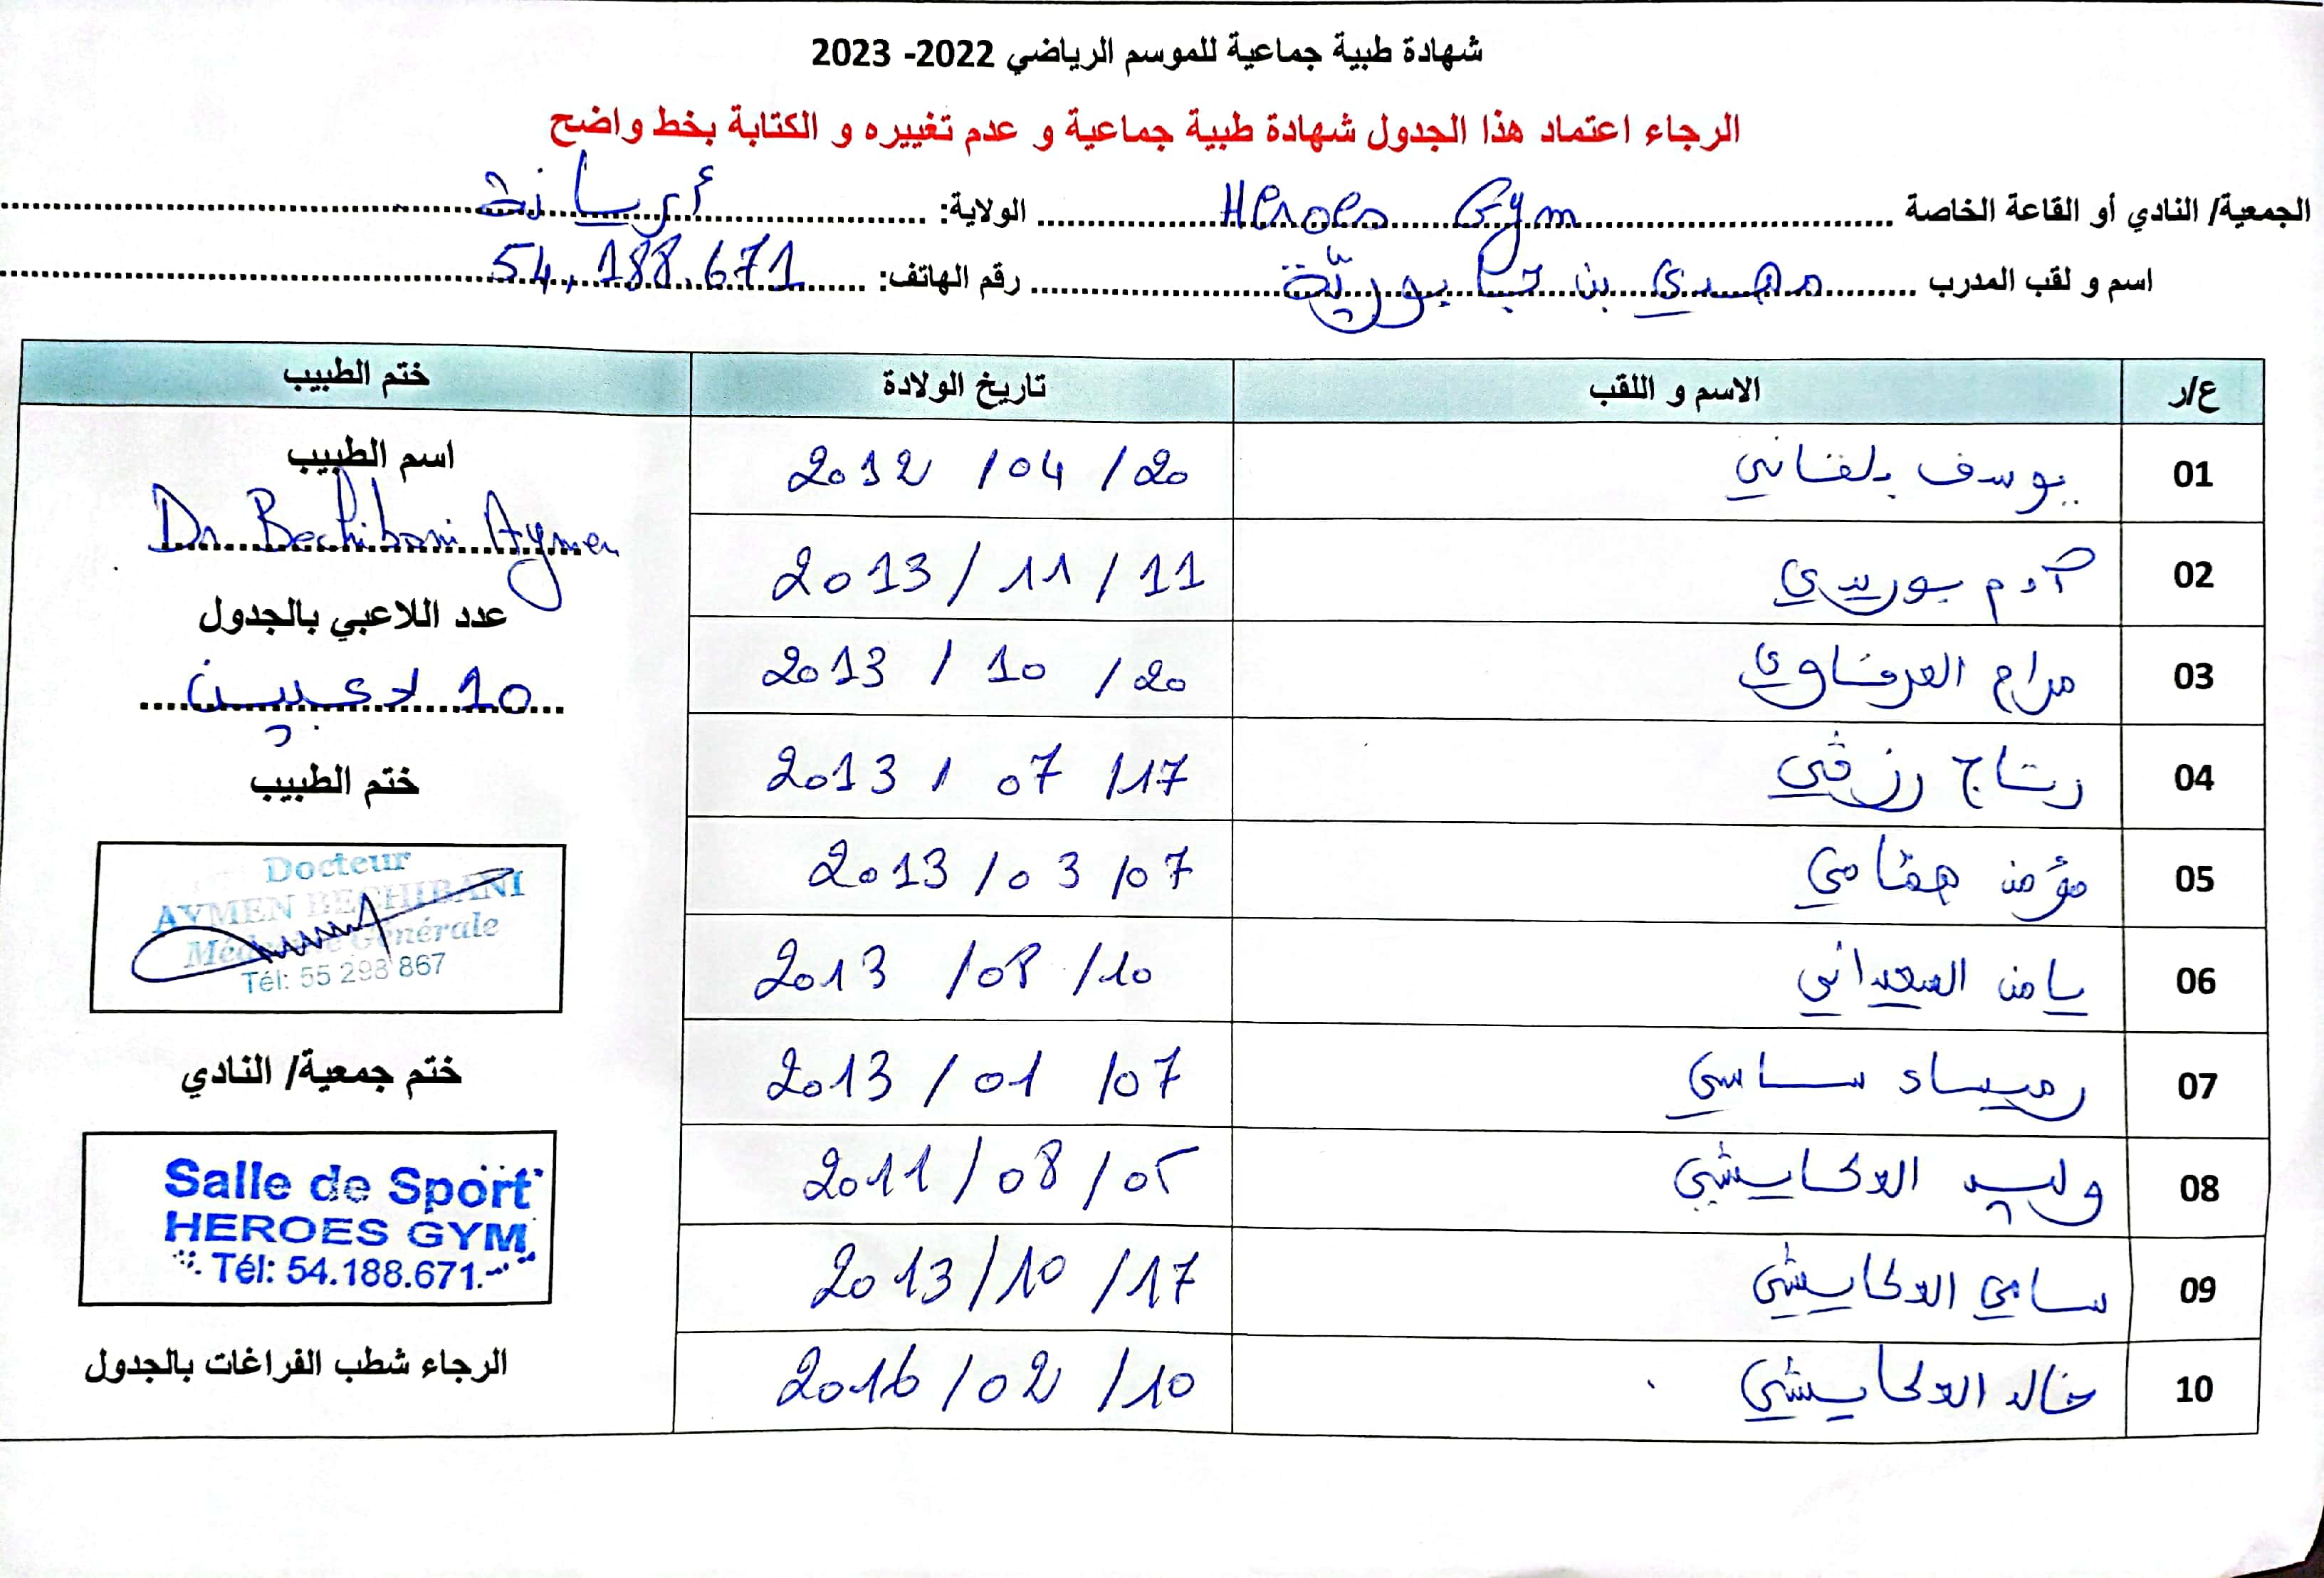 شهادة طبية جماعية للموسم الرياضي 2022- 2023
الرجاء اعتماد هذا الجدول شهادة طبية جماعية و عدم تغييره و الكتابة بخط واضح
الجمعية/ النادي أو القاعة الخاصة Heroes Gym الولاية: أريانة
اسم و لقب المدرب مهدي بن جابورية رقم الهاتف: 54.188.671
ع/ر الاسم و اللقب تاريخ الولادة ختم الطبيب
01 يوسف بلقاني 20/ 04/ 2012
02 آدم بوريدي 11/ 11/ 2013
03 مرام العرفاوي 20/ 10/ 2013
04 رتاج رزقي 17/ 07/ 2013
05 مؤمن همامي 07/ 03/ 2013
06 يامن السعيداني 10/ 08/ 2013
07 رميساء ساسي 07/ 01/ 2013
08 وليد العكايشي 05/ 08/ 2011
09 سامي العكايشي 17/ 10/ 2013
10 خالد العكايشي 10/ 02/ 2016
اسم الطبيب
Dr. Bechibani Aymen
عدد اللاعبي بالجدول
10 لاعبين
ختم الطبيب
Docteur
AYMEN BECHIBANI
Médecine Générale
Tél: 55 298 867
ختم جمعية/ النادي
Salle de Sport
HEROES GYM
Tél: 54.188.671
الرجاء شطب الفراغات بالجدول